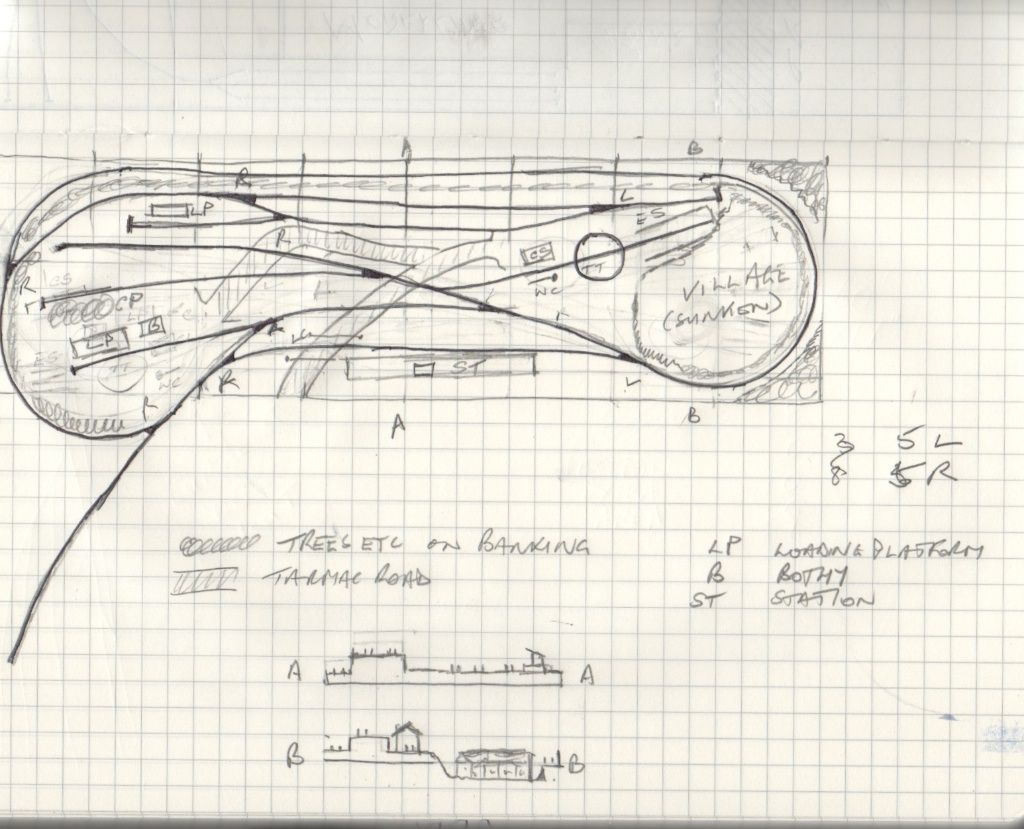 A
B
R
L
LP
ES
R
CS
TT
WC
R
CS
CP
L
VILLAGE
(SUNKEN)
B
LP
ES
WC
R
ST
L
R
A
B
3 5 L
8 5 R
TREES ETC ON BANKING
TARMAC ROAD
LP LOADING PLATFORM
B BOTHY
ST STATION
A A
B B